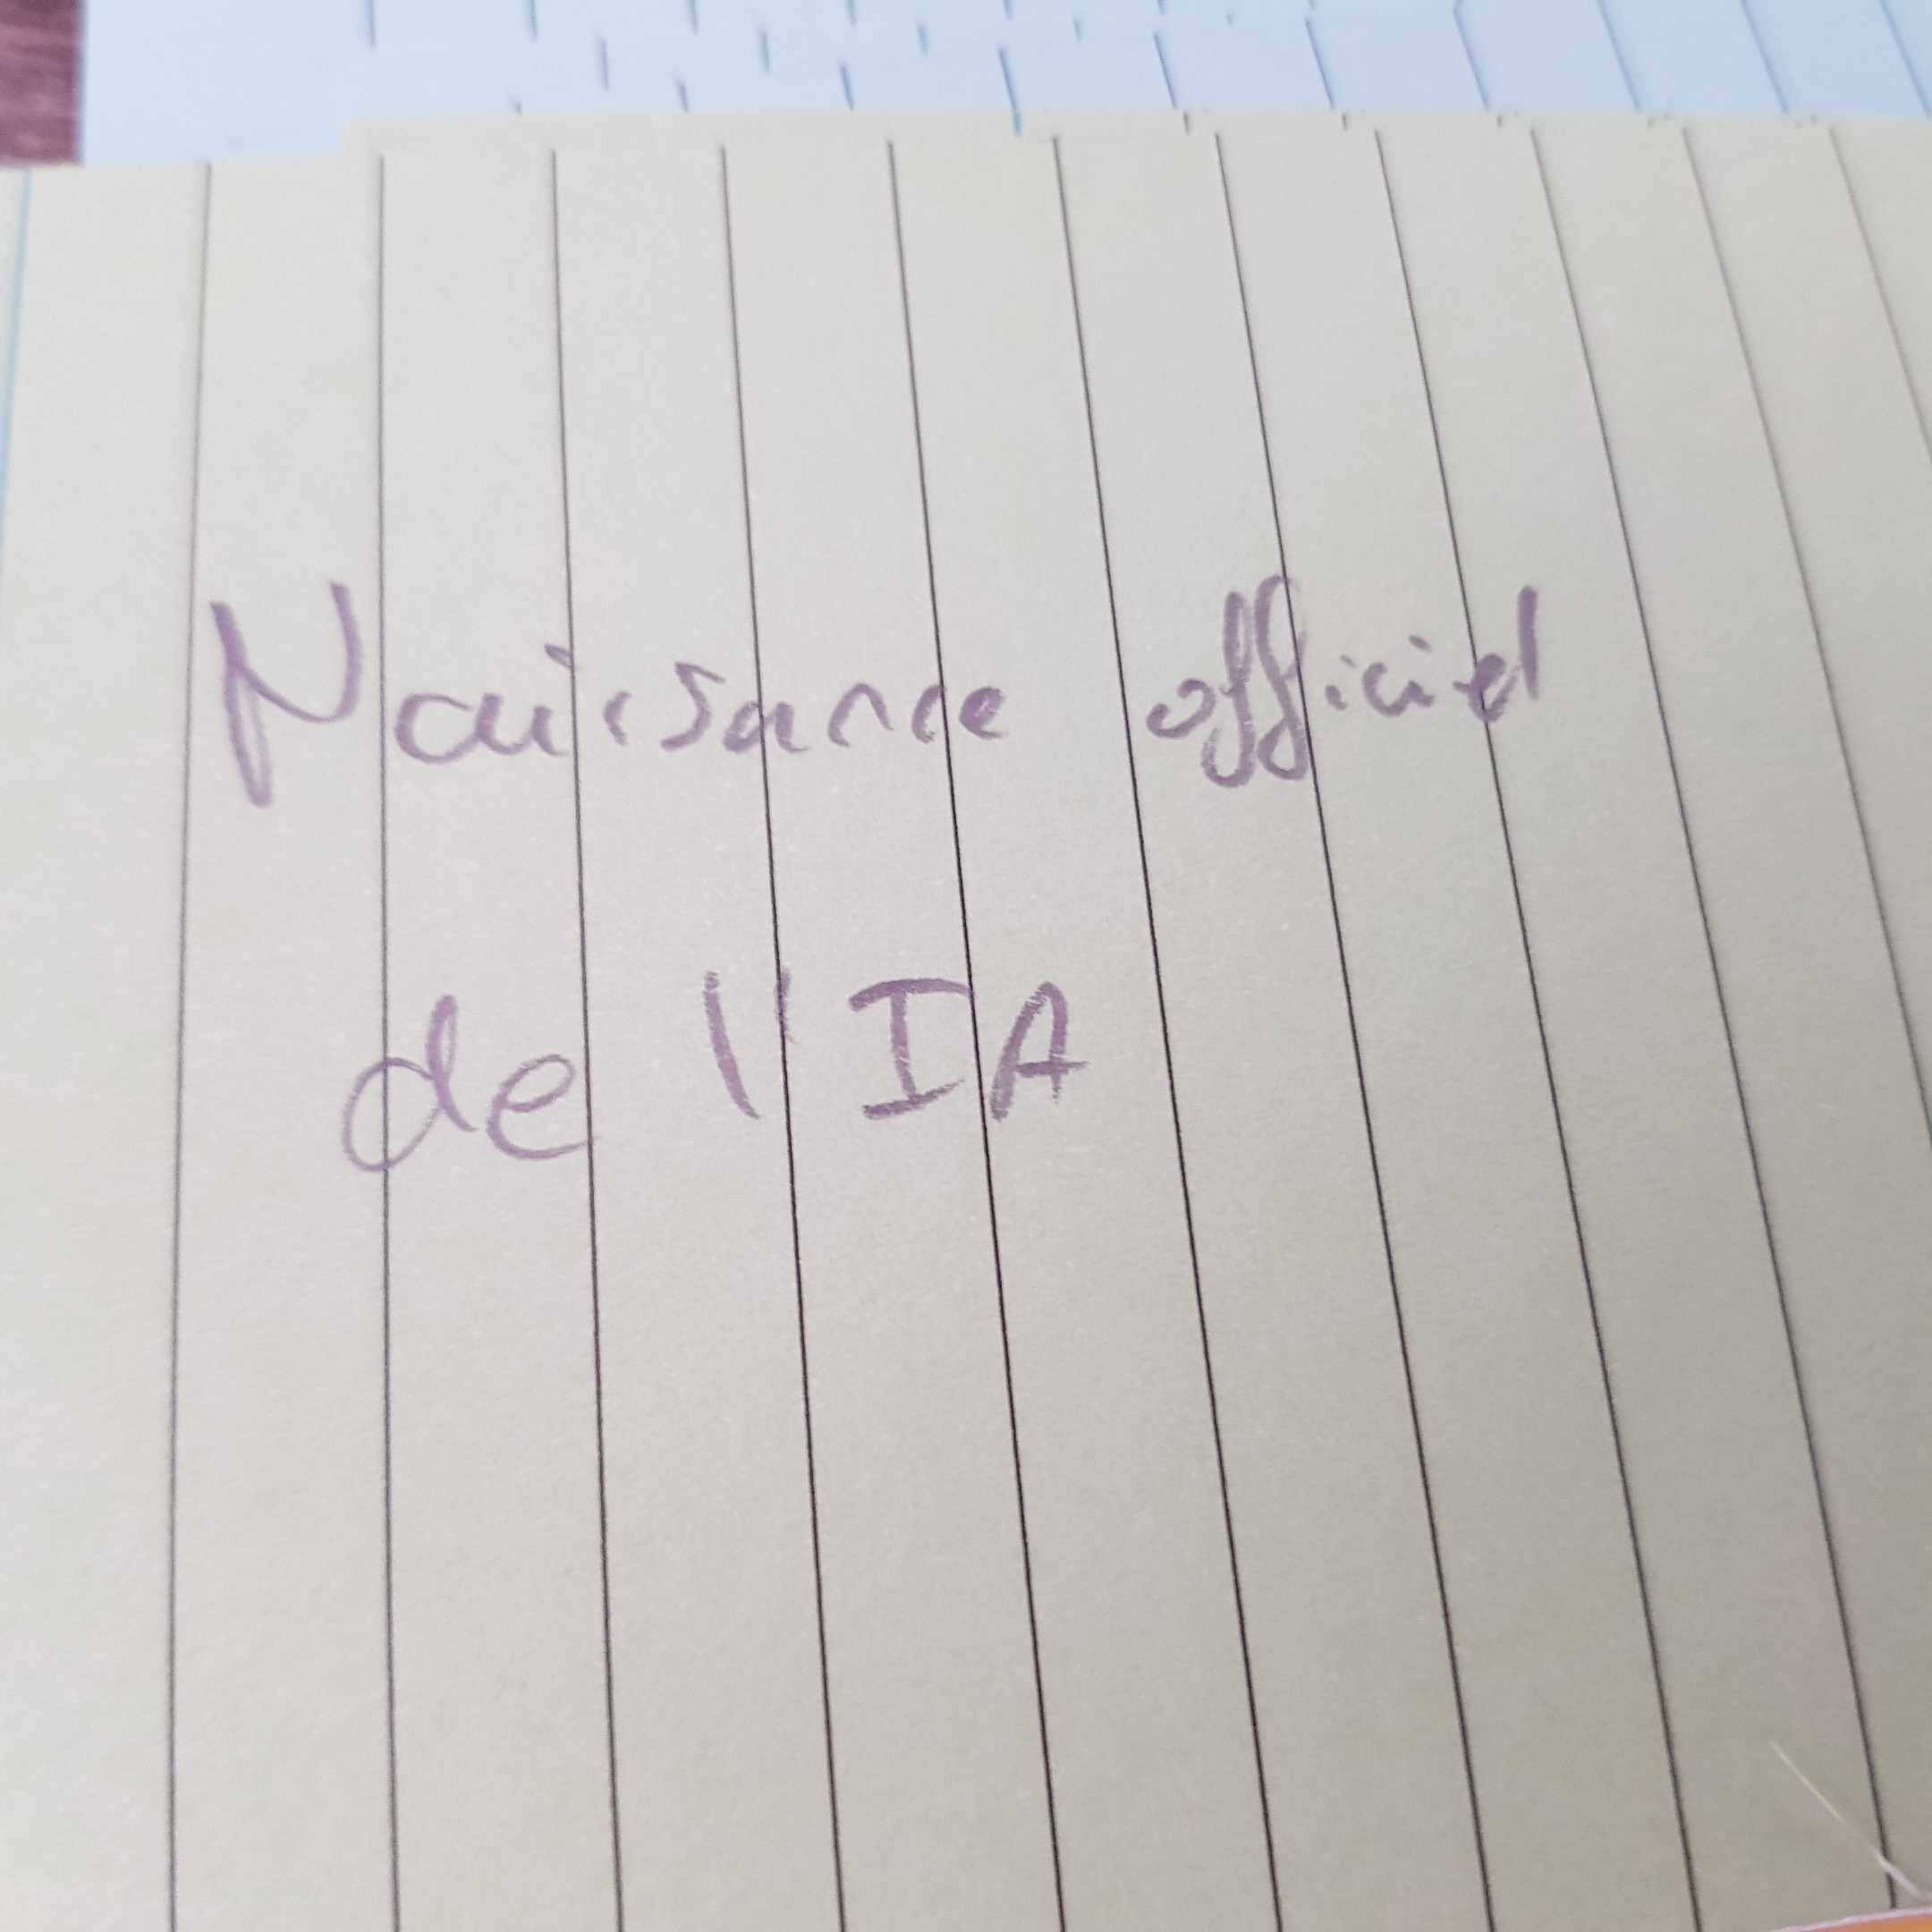 Naissance officiel
de l'IA